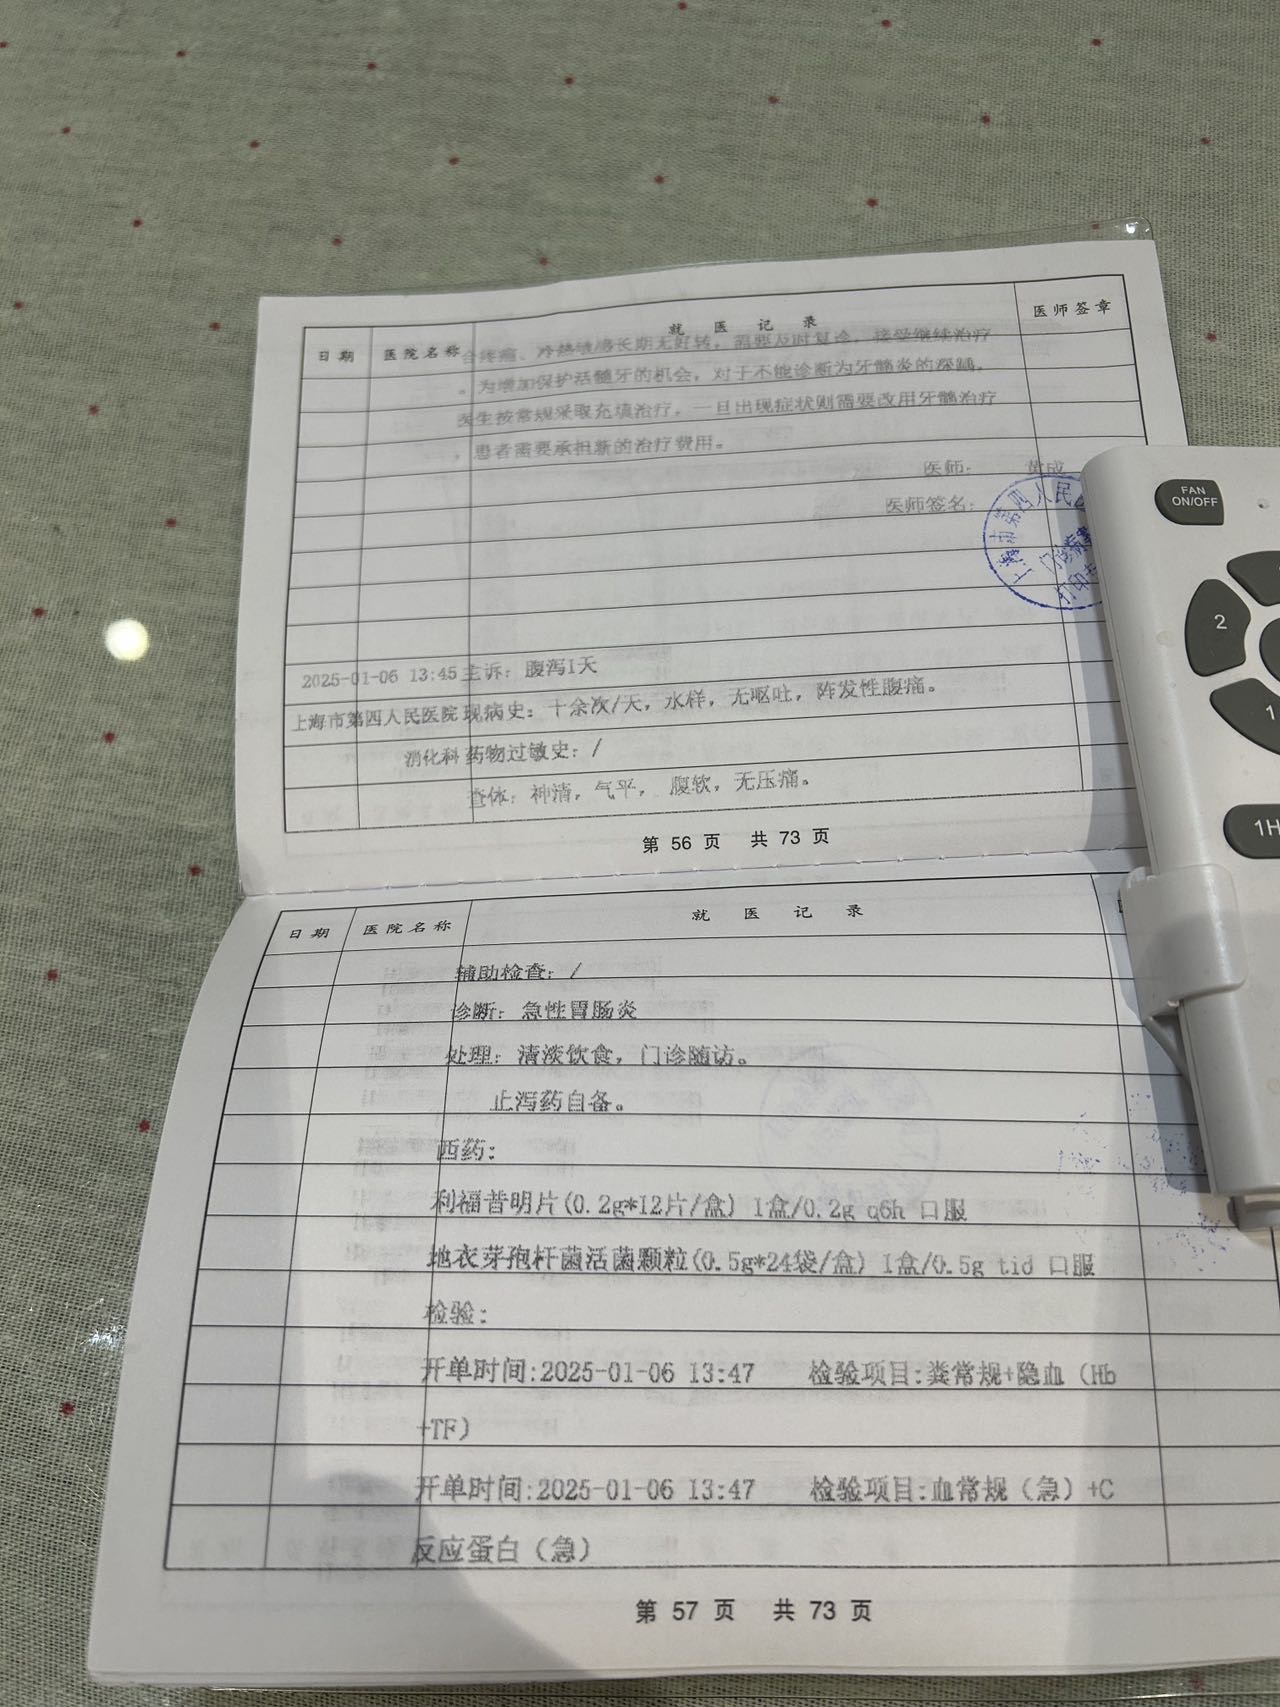 日期 医院名称 就医记录 医师签章
合疼痛、冷热敏感长期无好转，需要及时复诊，接受继续治疗
。为增加保护活髓牙的机会，对于不能诊断为牙髓炎的深龋，
医生按常规采取充填治疗，一旦出现症状则需要改用牙髓治疗
，患者需要承担新的治疗费用。
医师： 黄成
医师签名：
上海市第四人民
2025-01-06 13:45 主诉：腹泻1天
上海市第四人民医院 现病史：十余次/天，水样，无呕吐，阵发性腹痛。
消化科 药物过敏史：/
查体：神清，气平，腹软，无压痛。
第 56 页 共 73 页
日期 医院名称 就医记录
辅助检查：/
诊断：急性胃肠炎
处理：清淡饮食，门诊随访。
止泻药自备。
西药：
利福昔明片(0.2g*12片/盒) 1盒/0.2g q6h 口服
地衣芽孢杆菌活菌颗粒(0.5g*24袋/盒) 1盒/0.5g tid 口服
检验：
开单时间:2025-01-06 13:47 检验项目:粪常规+隐血（Hb
+TF）
开单时间:2025-01-06 13:47 检验项目:血常规（急）+C
反应蛋白（急）
第 57 页 共 73 页
FAN
ON/OFF
2
1
1H